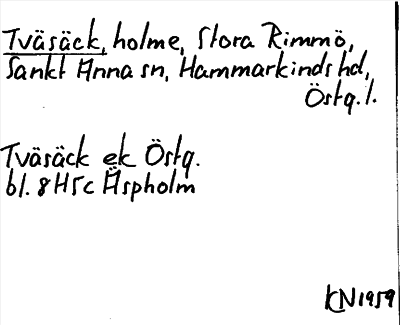 Tväsäck, holme, Stora Rimmö,
Sankt Anna sn, Hammarkinds hd,
Östg. l.
Tväsäck ek Östg.
bl. 8H5c Äspholm
KN 1959